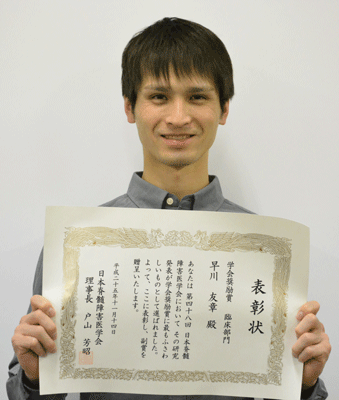 表彰状
学会奨励賞 臨床部門
早川 友章 殿
あなたは 第四十八回 日本脊髄
障害医学会において その研究
発表が学会奨励賞に最もふさわ
しいものとして選ばれました。
よって、ここに表彰し、副賞を
贈呈いたします。
平成二十五年十一月十四日
日本脊髄障害医学会
理事長 戸山 芳昭